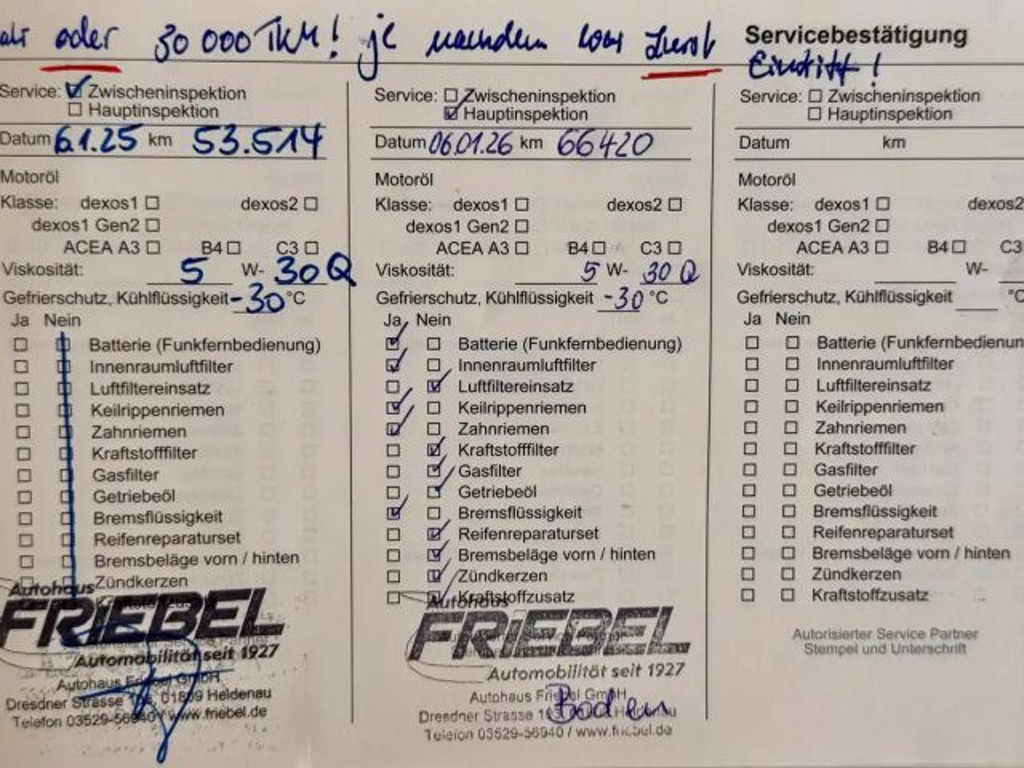 oder 30 000 TKM! je nachdem was zuerst
Eintritt!
Servicebestätigung
Service: Zwischeninspektion
Hauptinspektion
Datum 6.1.25 km 53.514
Motoröl
Klasse: dexos1 dexos2
dexos1 Gen2
ACEA A3 B4 C3
Viskosität: 5 W- 30 Q
Gefrierschutz, Kühlflüssigkeit -30 °C
Ja Nein
Batterie (Funkfernbedienung)
Innenraumluftfilter
Luftfiltereinsatz
Keilrippenriemen
Zahnriemen
Kraftstofffilter
Gasfilter
Getriebeöl
Bremsflüssigkeit
Reifenreparaturset
Bremsbeläge vorn / hinten
Zündkerzen
Autohaus
FRIEBEL
Automobilität seit 1927
Autohaus Friebel GmbH
Dresdner Straße 01809 Heidenau
Telefon 03529-56940 / www.friebel.de
Service: Zwischeninspektion
Hauptinspektion
Datum 06.01.26 km 66420
Motoröl
Klasse: dexos1 dexos2
dexos1 Gen2
ACEA A3 B4 C3
Viskosität: 5 W- 30 Q
Gefrierschutz, Kühlflüssigkeit -30 °C
Ja Nein
Batterie (Funkfernbedienung)
Innenraumluftfilter
Luftfiltereinsatz
Keilrippenriemen
Zahnriemen
Kraftstofffilter
Gasfilter
Getriebeöl
Bremsflüssigkeit
Reifenreparaturset
Bremsbeläge vorn / hinten
Zündkerzen
Kraftstoffzusatz
Autohaus
FRIEBEL
Automobilität seit 1927
Autohaus Friebel GmbH
Dresdner Straße Heidenau
Telefon 03529-56940 / www.friebel.de
Service: Zwischeninspektion
Hauptinspektion
Datum km
Motoröl
Klasse: dexos1 dexos2
dexos1 Gen2
ACEA A3 B4 C3
Viskosität: W-
Gefrierschutz, Kühlflüssigkeit °C
Ja Nein
Batterie (Funkfernbedienun
Innenraumluftfilter
Luftfiltereinsatz
Keilrippenriemen
Zahnriemen
Kraftstofffilter
Gasfilter
Getriebeöl
Bremsflüssigkeit
Reifenreparaturset
Bremsbeläge vorn / hinten
Zündkerzen
Kraftstoffzusatz
Autorisierter Service Partner
Stempel und Unterschrift